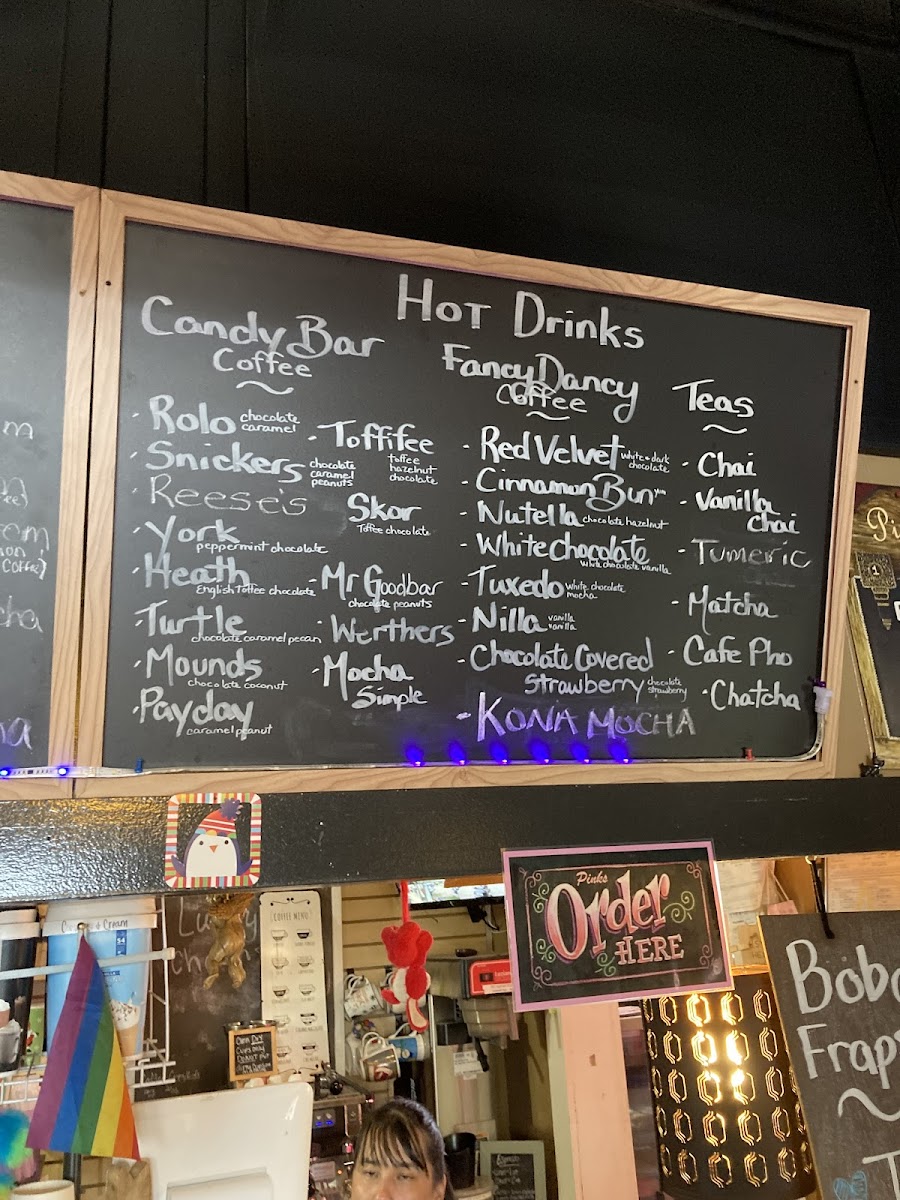 Hot Drinks
Candy Bar
Coffee
Rolo chocolate
caramel
Snickers chocolate
caramel
peanuts
Reese's
York
peppermint chocolate
Heath
English Toffee chocolate
Turtle
chocolate caramel pecan
Mounds
chocolate coconut
Payday
caramel peanut
Toffifee
toffee
hazelnut
chocolate
Skor
Toffee chocolate
Mr Goodbar
chocolate peanuts
Werthers
Mocha
Simple
Fancy Dancy
Coffee
Red Velvet white & dark
chocolate
Cinnamon Bun yum
Nutella chocolate hazelnut
White Chocolate
white chocolate vanilla
Tuxedo white chocolate
mocha
Nilla vanilla
vanilla
Chocolate Covered
Strawberry chocolate
strawberry
KONA MOCHA
Teas
Chai
Vanilla
chai
Tumeric
Matcha
Cafe Pho
Chatcha
Pinks
Order
HERE
COFFEE MENU
Boba
Frap